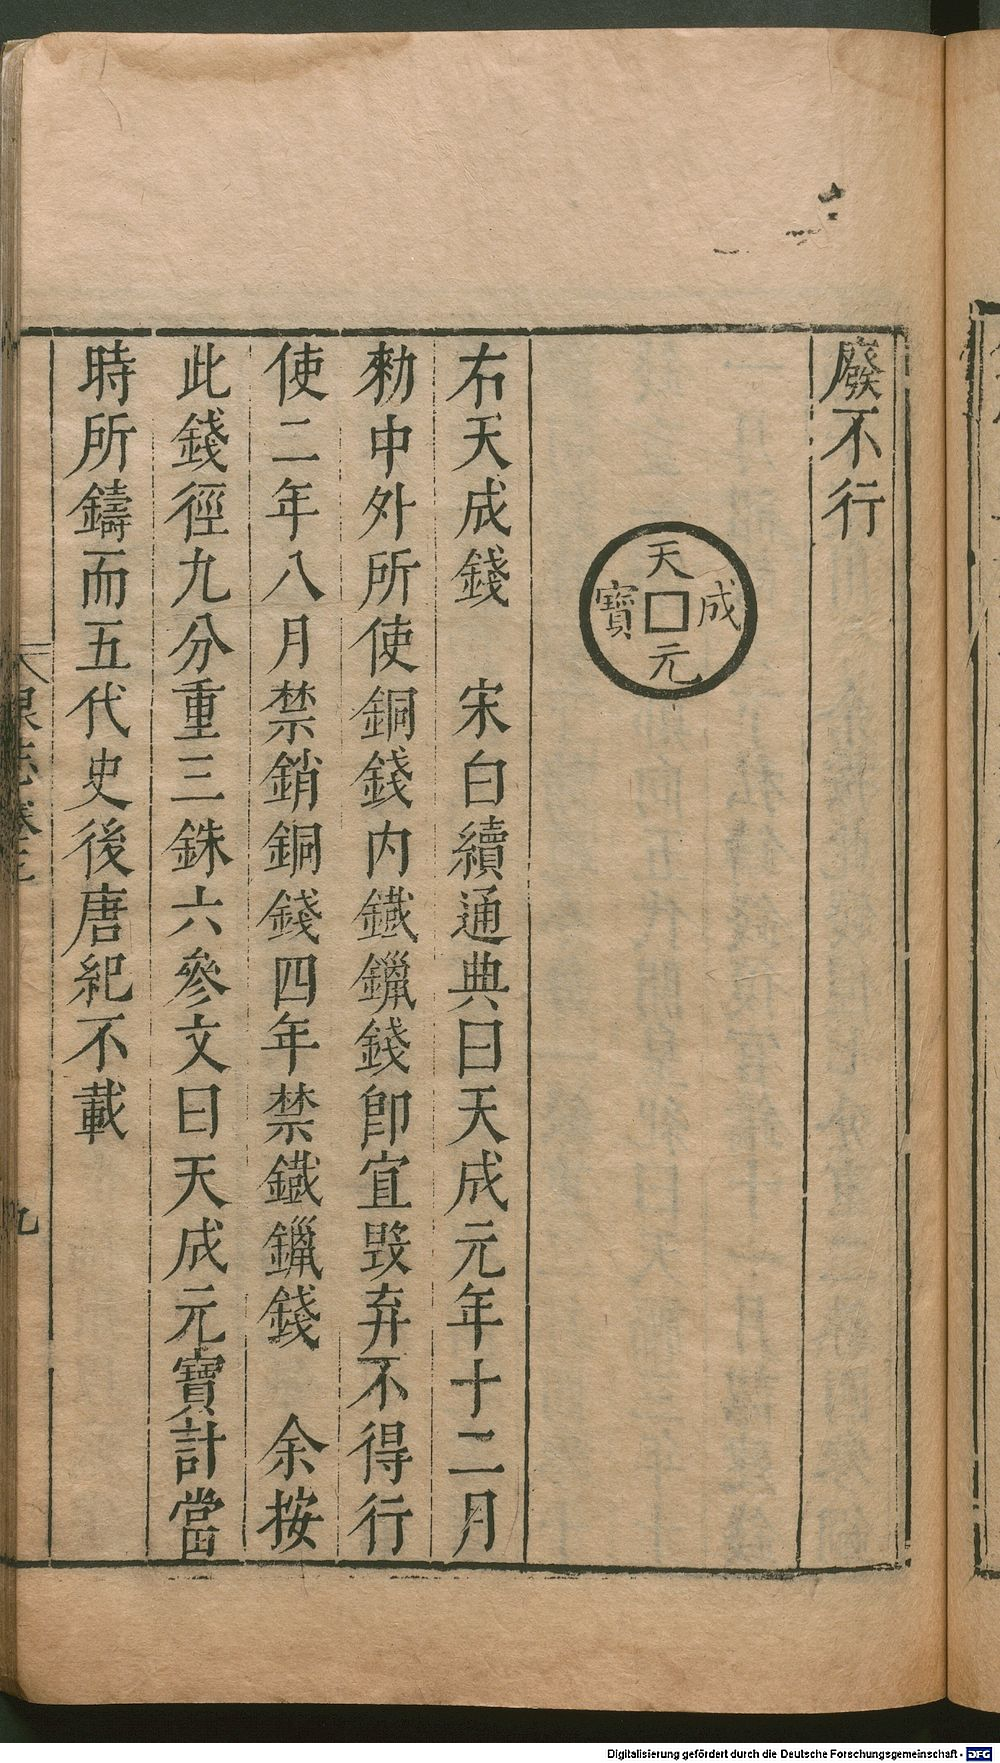 廢不行
天成元寶
右天成錢　宋白續通典曰天成元年十二月
勑中外所使銅錢内鐵鑞錢卽宜毀弃不得行
使二年八月禁銷銅錢四年禁鐵鑞錢　余按
此錢徑九分重三銖六參文曰天成元寶計當
時所鑄而五代史後唐紀不載
泉志卷三
九
Digitalisierung gefördert durch die Deutsche Forschungsgemeinschaft - DFG